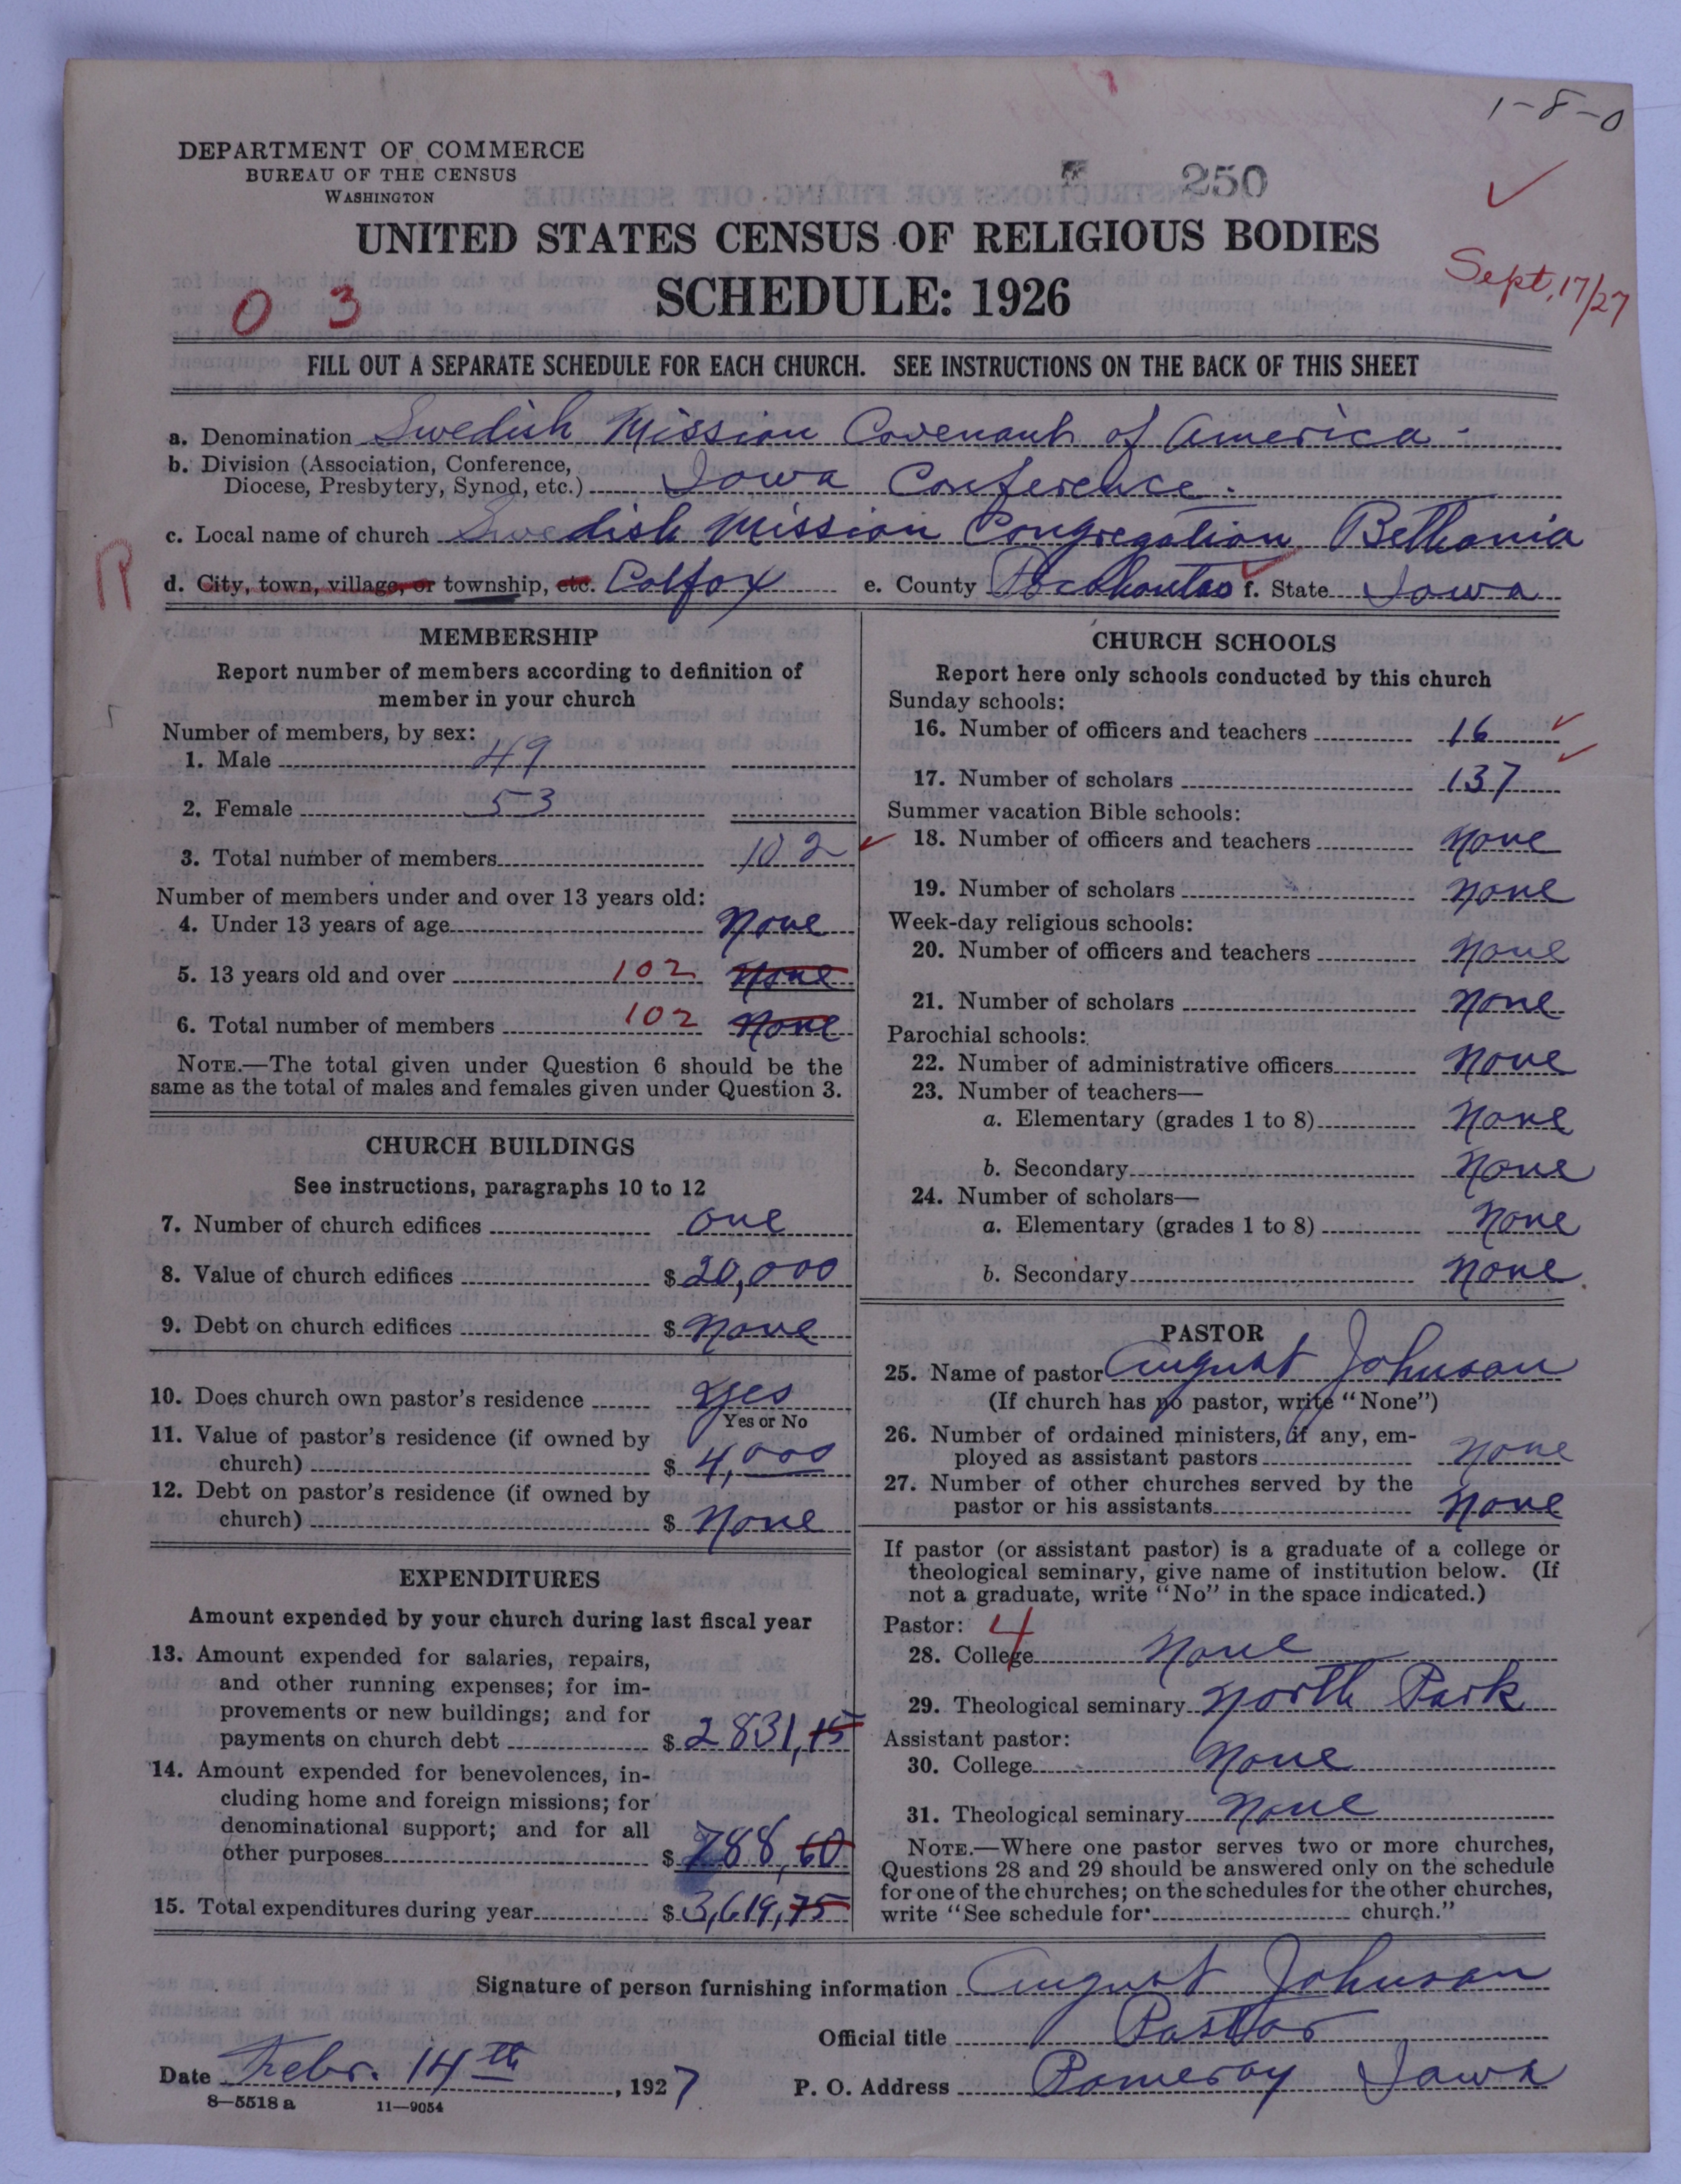 1-8-0
DEPARTMENT OF COMMERCE
BUREAU OF THE CENSUS
WASHINGTON
250
UNITED STATES CENSUS OF RELIGIOUS BODIES
SCHEDULE: 1926
Sept, 17/27
0 3
FILL OUT A SEPARATE SCHEDULE FOR EACH CHURCH. SEE INSTRUCTIONS ON THE BACK OF THIS SHEET
a. Denomination Swedish Mission Covenant of America
b. Division (Association, Conference,
Diocese, Presbytery, Synod, etc.) Iowa Conference
c. Local name of church Swedish Mission Congregation Bethania
R
d. City, town, village, or township, etc. Colfox e. County Pocahontas f. State Iowa
MEMBERSHIP
Report number of members according to definition of
member in your church
Number of members, by sex:
1. Male 49
2. Female 53
3. Total number of members 102
Number of members under and over 13 years old:
4. Under 13 years of age None
5. 13 years old and over 102 None
6. Total number of members 102 None
NOTE.—The total given under Question 6 should be the
same as the total of males and females given under Question 3.
CHURCH BUILDINGS
See instructions, paragraphs 10 to 12
7. Number of church edifices one
8. Value of church edifices $ 20,000
9. Debt on church edifices $ None
10. Does church own pastor's residence yes
Yes or No
11. Value of pastor's residence (if owned by
church) $ 4,000
12. Debt on pastor's residence (if owned by
church) $ None
EXPENDITURES
Amount expended by your church during last fiscal year
13. Amount expended for salaries, repairs,
and other running expenses; for im-
provements or new buildings; and for
payments on church debt $ 2831,15
14. Amount expended for benevolences, in-
cluding home and foreign missions; for
denominational support; and for all
other purposes $ 788,60
15. Total expenditures during year $ 3,619,75
CHURCH SCHOOLS
Report here only schools conducted by this church
Sunday schools:
16. Number of officers and teachers 16
17. Number of scholars 137
Summer vacation Bible schools:
18. Number of officers and teachers None
19. Number of scholars None
Week-day religious schools:
20. Number of officers and teachers None
21. Number of scholars None
Parochial schools:
22. Number of administrative officers None
23. Number of teachers—
a. Elementary (grades 1 to 8) None
b. Secondary None
24. Number of scholars—
a. Elementary (grades 1 to 8) None
b. Secondary None
PASTOR
25. Name of pastor August Johnson
(If church has no pastor, write "None")
26. Number of ordained ministers, if any, em-
ployed as assistant pastors None
27. Number of other churches served by the
pastor or his assistants None
If pastor (or assistant pastor) is a graduate of a college or
theological seminary, give name of institution below. (If
not a graduate, write "No" in the space indicated.)
Pastor: 4
28. College None
29. Theological seminary North Park
Assistant pastor:
30. College None
31. Theological seminary None
NOTE.—Where one pastor serves two or more churches,
Questions 28 and 29 should be answered only on the schedule
for one of the churches; on the schedules for the other churches,
write "See schedule for church."
Signature of person furnishing information August Johnson
Official title Pastor
Date Febr. 14th, 1927 P. O. Address Pomeroy Iowa
8—5518 a 11—9054